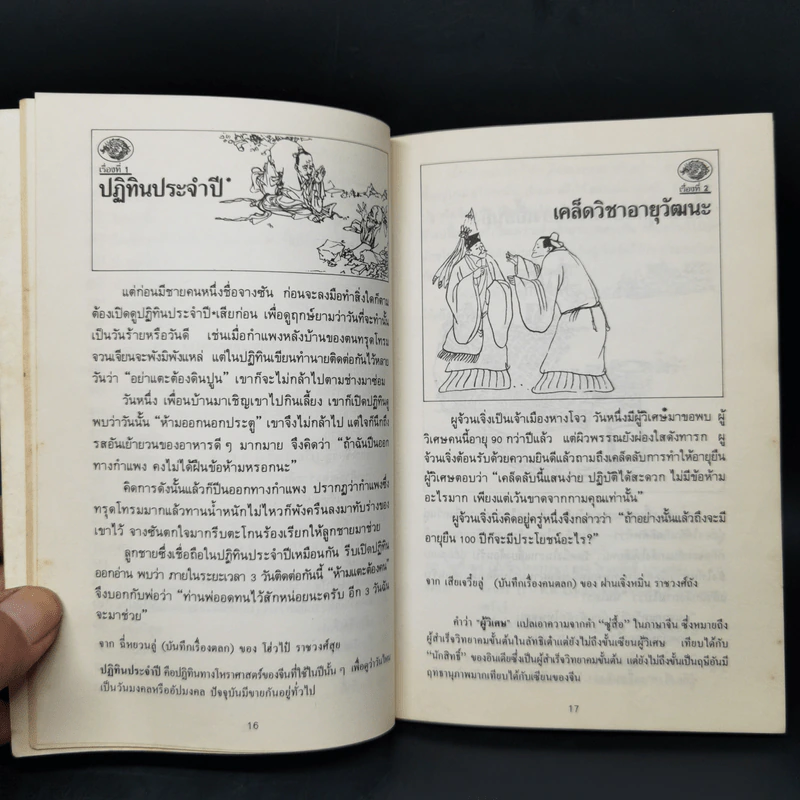 เรื่องที่ 1
ปฏิทินประจำปี*
แต่ก่อนมีชายคนหนึ่งชื่อจางซัน ก่อนจะลงมือทำสิ่งใดก็ตาม
ต้องเปิดดูปฏิทินประจำปี*เสียก่อน เพื่อดูฤกษ์ยามว่าวันที่จะทำนั้น
เป็นวันร้ายหรือวันดี เช่นเมื่อกำแพงหลังบ้านของตนทรุดโทรม
จวนเจียนจะพังมิพังแหล่ แต่ในปฏิทินเขียนทำนายติดต่อกันไว้หลาย
วันว่า “อย่าแตะต้องดินปูน” เขาก็จะไม่กล้าไปตามช่างมาซ่อม
วันหนึ่ง เพื่อนบ้านมาเชิญเขาไปกินเลี้ยง เขาก็เปิดปฏิทินดู
พบว่าวันนั้น “ห้ามออกนอกประตู” เขาจึงไม่กล้าไป แต่ใจก็นึกถึง
รสอันเย้ายวนของอาหารดี ๆ มากมาย จึงคิดว่า “ถ้าฉันปีนออก
ทางกำแพง คงไม่ได้ฝืนข้อห้ามหรอกนะ”
คิดการดังนั้นแล้วก็ปีนออกทางกำแพง ปรากฏว่ากำแพงซึ่ง
ทรุดโทรมมากแล้วทานน้ำหนักไม่ไหวก็พังครืนลงมาทับร่างของ
เขาไว้ จางซันตกใจมากรีบตะโกนร้องเรียกให้ลูกชายมาช่วย
ลูกชายซึ่งเชื่อถือในปฏิทินประจำปีเหมือนกัน รีบเปิดปฏิทิน
ออกอ่าน พบว่า ภายในระยะเวลา 3 วันติดต่อกันนี้ “ห้ามแตะต้องคน”
จึงบอกกับพ่อว่า “ท่านพ่ออดทนไว้สักหน่อยนะครับ อีก 3 วันฉัน
จะมาช่วย”
จาก ฉี่หยวนลู่ (บันทึกเรื่องตลก) ของ โฮ่วไป๋ ราชวงศ์สุย
ปฏิทินประจำปี คือปฏิทินทางโหราศาสตร์ของจีนที่ใช้ในปีนั้น ๆ เพื่อดูว่าวันไหน
เป็นวันมงคลหรืออัปมงคล ปัจจุบันมีขายกันอยู่ทั่วไป
16
เรื่องที่ 2
เคล็ดวิชาอายุวัฒนะ
ผูจ้วนเจิ่งเป็นเจ้าเมืองหางโจว วันหนึ่งมีผู้วิเศษ*มาขอพบ ผู้
วิเศษคนนี้อายุ 90 กว่าปีแล้ว แต่ผิวพรรณยังผ่องใสดังทารก ผู
จ้วนเจิ่งต้อนรับด้วยความยินดีแล้วถามถึงเคล็ดลับการทำให้อายุยืน
ผู้วิเศษตอบว่า “เคล็ดลับนี้แสนง่าย ปฏิบัติได้สะดวก ไม่มีข้อห้าม
อะไรมาก เพียงแต่เว้นขาดจากกามคุณเท่านั้น”
ผูจ้วนเจิ่งนิ่งคิดอยู่ครู่หนึ่งจึงกล่าวว่า “ถ้าอย่างนั้นแล้วถึงจะมี
อายุยืน 100 ปีก็จะมีประโยชน์อะไร?”
จาก เสียเจวี้ยลู่ (บันทึกเรื่องคนตลก) ของ ฝานเจิ้งหมิ่น ราชวงศ์ถัง
คำว่า “ผู้วิเศษ” แปลเอาความจากคำ “ซู่สื้อ” ในภาษาจีน ซึ่งหมายถึง
ผู้สำเร็จวิทยาคมขั้นต้นในลัทธิเต๋าแต่ยังไม่ถึงขั้นเซียนผู้วิเศษ เทียบได้กับ
“นักสิทธิ์” ของอินเดียซึ่งเป็นผู้สำเร็จวิทยาคมขั้นต้น แต่ยังไม่ถึงขั้นเป็นฤษีอันมี
ฤทธานุภาพมากเทียบได้กับเซียนของจีน
17